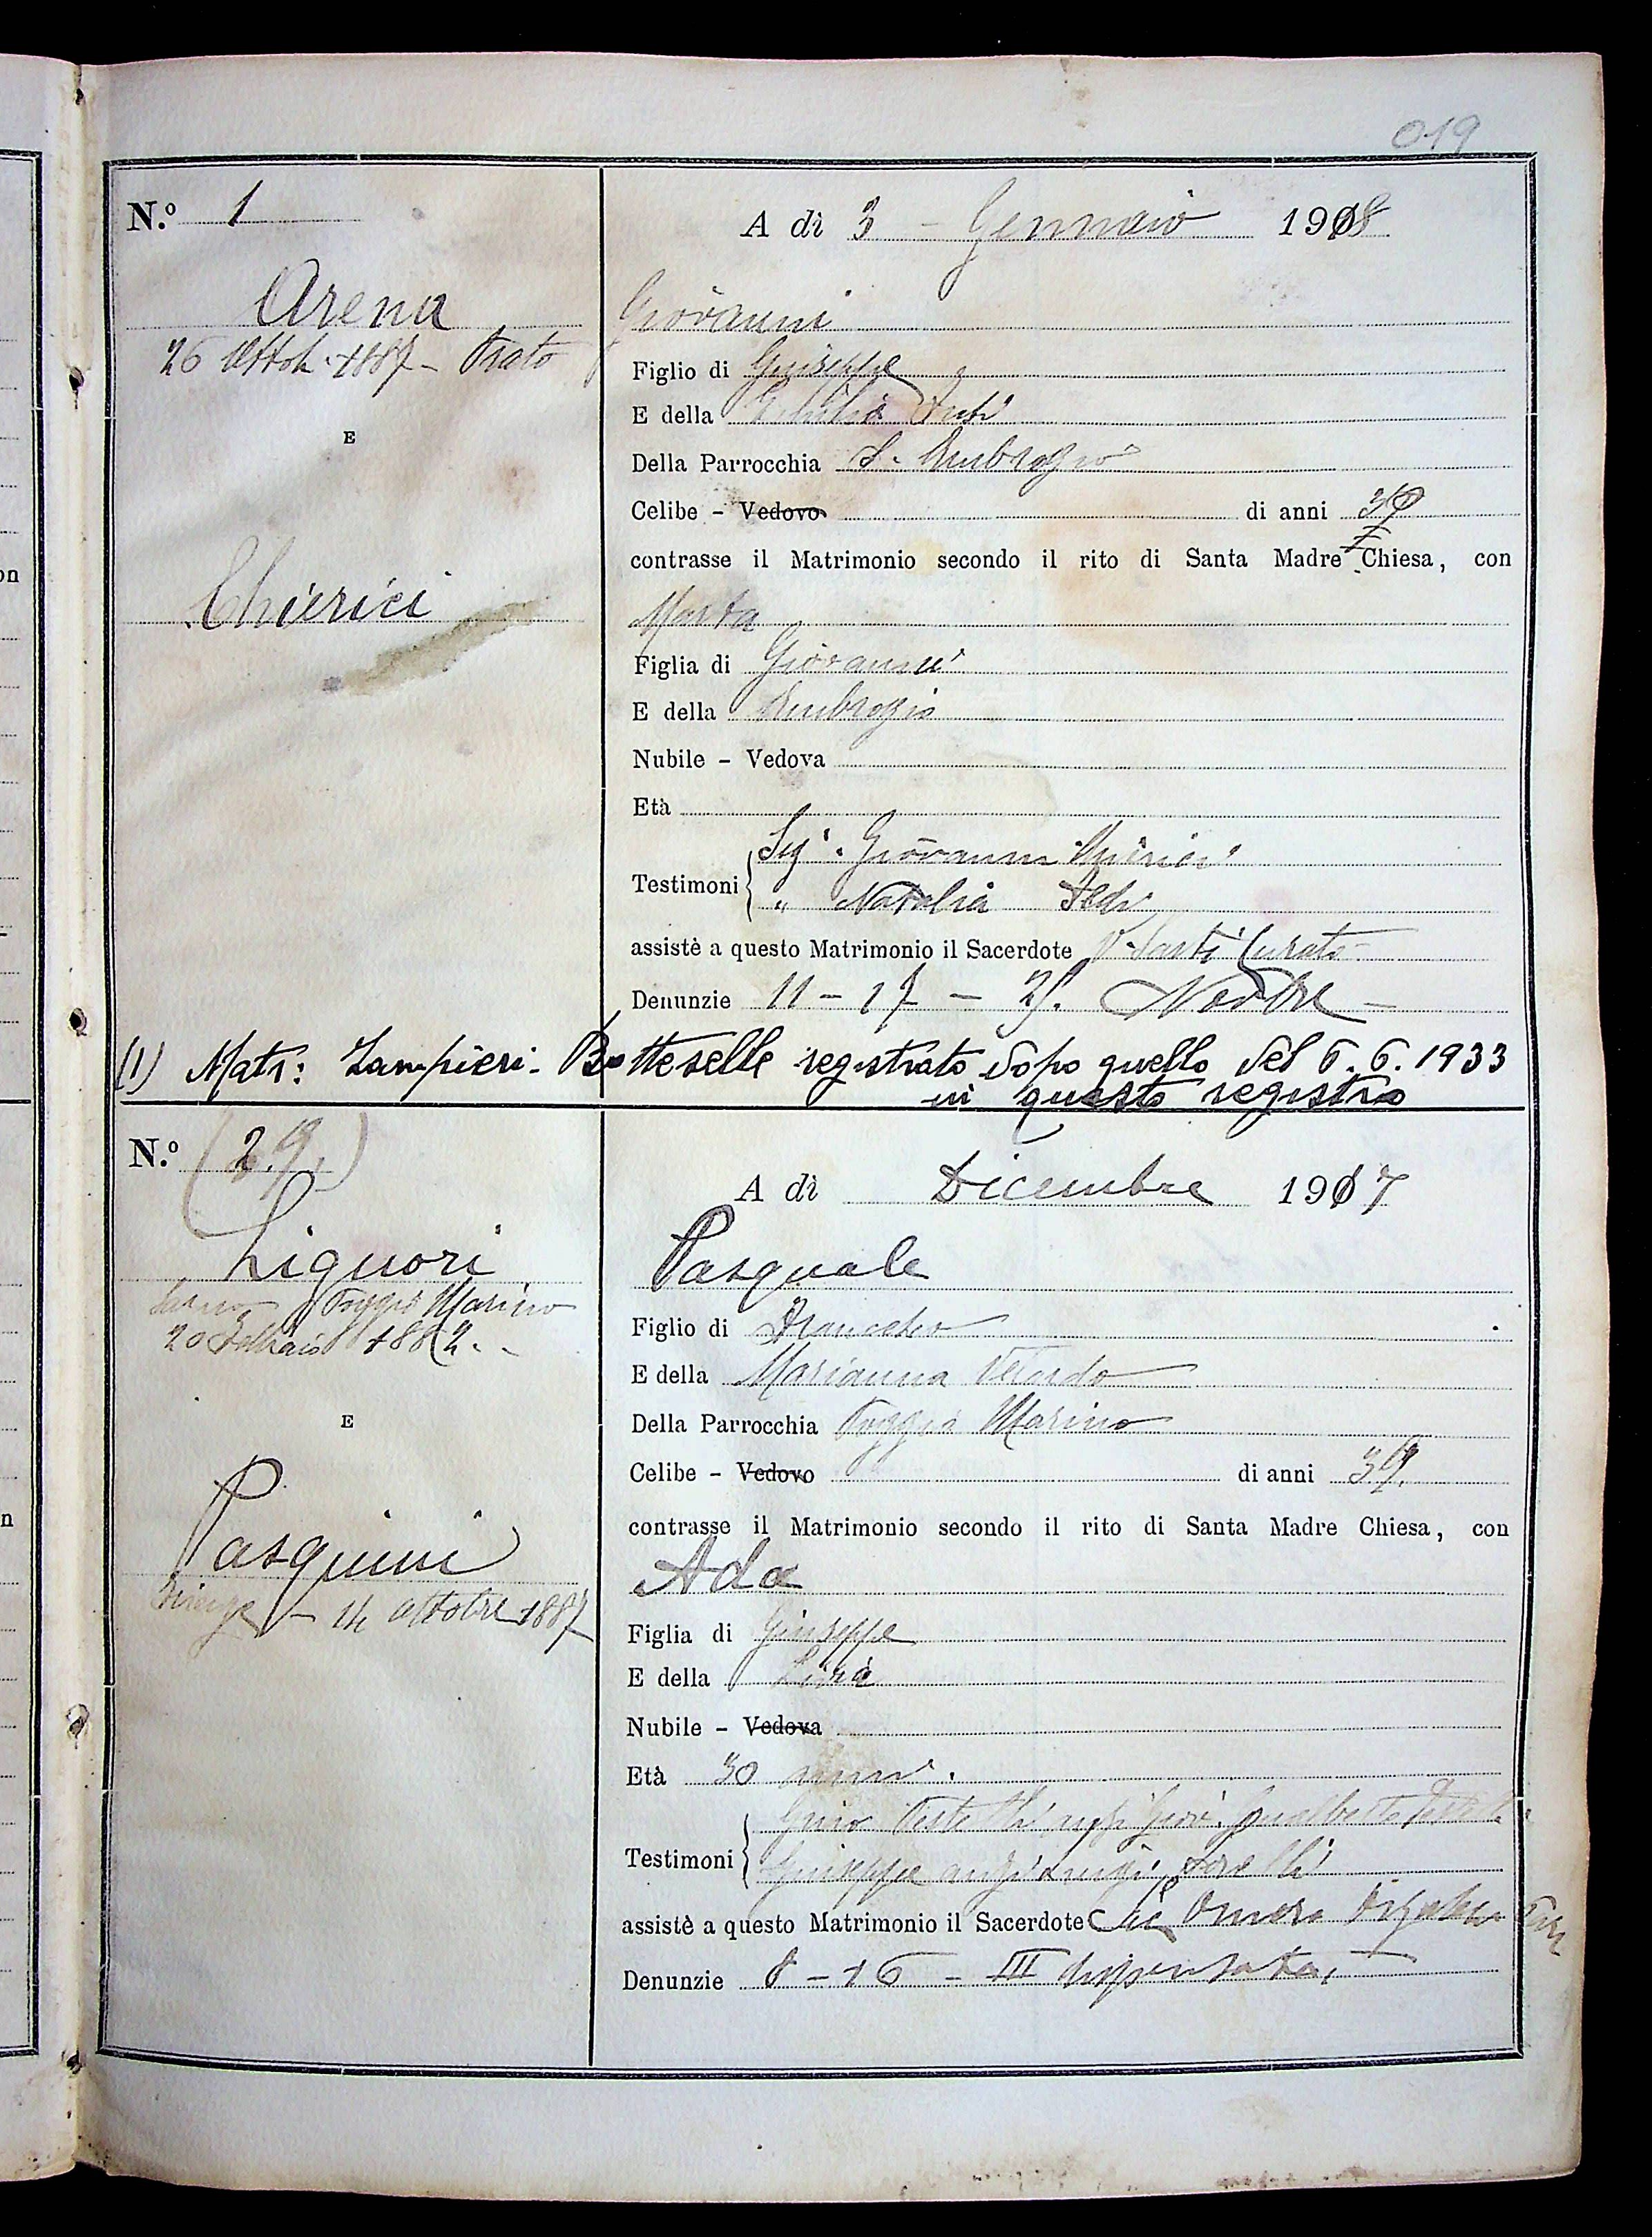 019
N.º 1
A dì 3 - Gennaio 1918
Arena
Giovanni
26 Ottob. 1887 - Prato
Figlio di Giuseppe
E della
E
Della Parrocchia S. Ambrogio
Celibe - Vedovo di anni
contrasse il Matrimonio secondo il rito di Santa Madre Chiesa, con
Chierici
Marta
Figlia di Giovanni
E della Ambrogio
Nubile - Vedova
Età
Sig. Giovanni Chierici
Testimoni
" Natalia
assistè a questo Matrimonio il Sacerdote V. Sarti Curato
Denunzie 11 - 17 - 25. Novbre
(1) Matr: Zampieri - Botteselle registrato dopo quello del 6.6.1933
in questo registro
N.º (29.)
A dì Dicembre 1917
Liguori
Pasquale
Sarno Poggio Marino
20 Febbraio 1882.
Figlio di Francesco
E della Marianna
E
Della Parrocchia Poggio Marino
Celibe - Vedovo di anni 39.
contrasse il Matrimonio secondo il rito di Santa Madre Chiesa, con
Pasquini
Ada
Firenze - 14 Ottobre 1887
Figlia di Giuseppe
E della
Nubile - Vedova
Età 30 anni.
Testimoni
Giuseppe
assistè a questo Matrimonio il Sacerdote
Denunzie 8 - 16 - III dispensata,